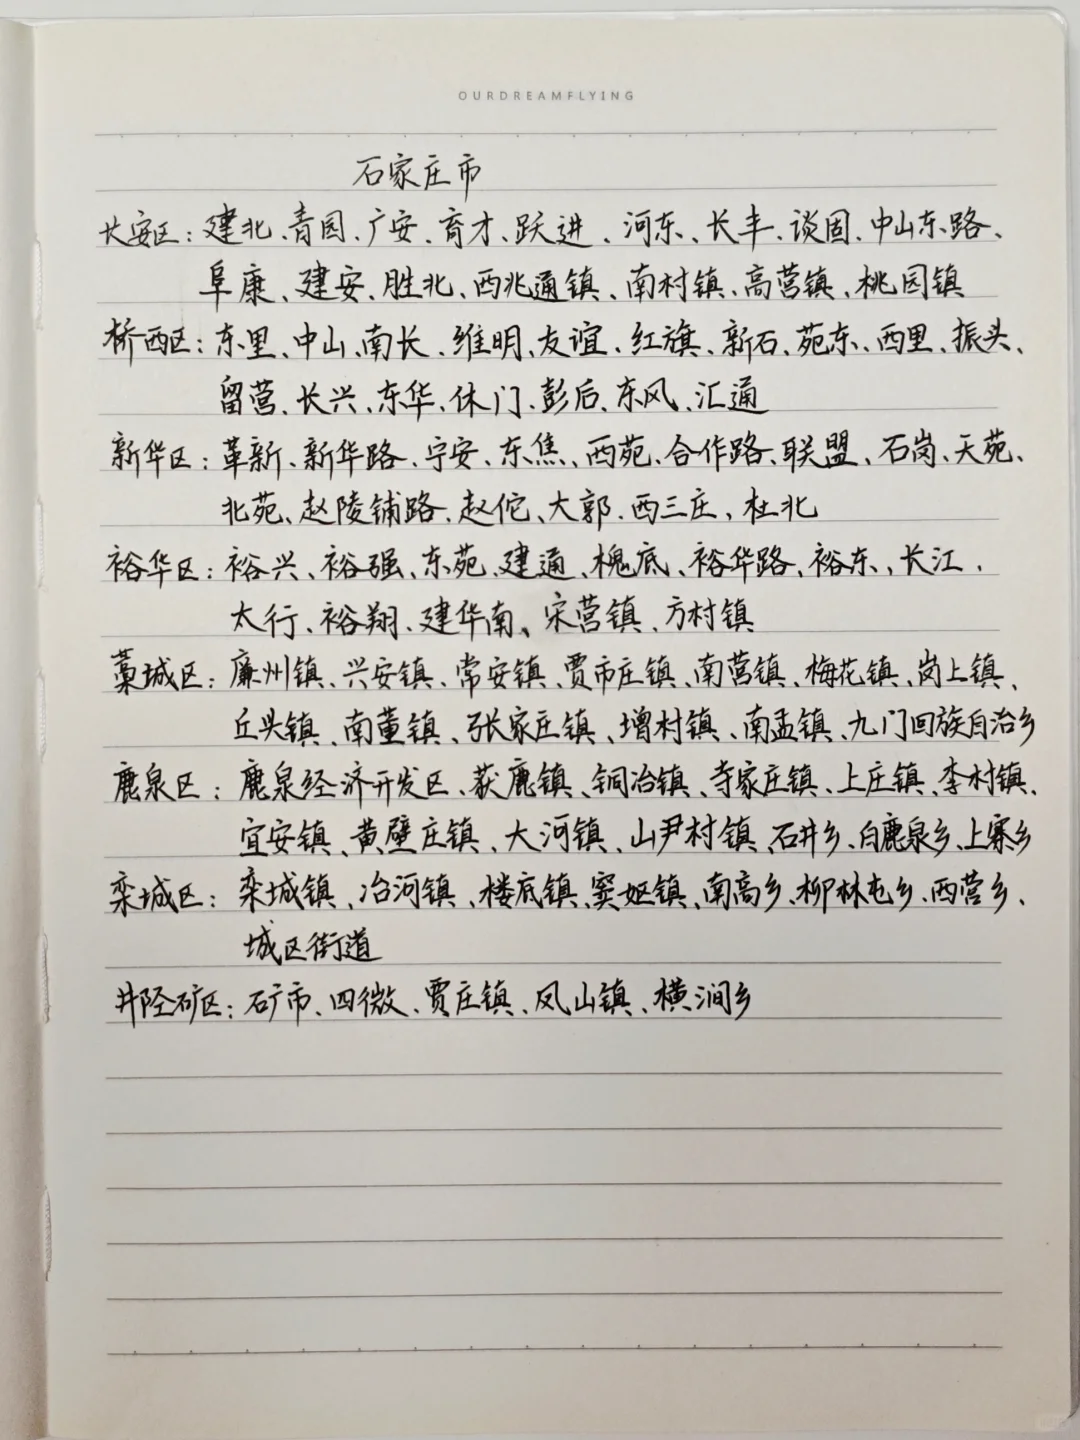 OURDREAMFLYING
石家庄市
长安区：建北、青园、广安、育才、跃进、河东、长丰、谈固、中山东路、
阜康、建安、胜北、西兆通镇、南村镇、高营镇、桃园镇
桥西区：东里、中山、南长、维明、友谊、红旗、新石、苑东、西里、振头、
留营、长兴、东华、休门、彭后、东风、汇通
新华区：革新、新华路、宁安、东焦、西苑、合作路、联盟、石岗、天苑、
北苑、赵陵铺路、赵佗、大郭、西三庄、杜北
裕华区：裕兴、裕强、东苑、建通、槐底、裕华路、裕东、长江、
太行、裕翔、建华南、宋营镇、方村镇
藁城区：廉州镇、兴安镇、常安镇、贾市庄镇、南营镇、梅花镇、岗上镇、
丘头镇、南董镇、张家庄镇、增村镇、南孟镇、九门回族自治乡
鹿泉区：鹿泉经济开发区、获鹿镇、铜冶镇、寺家庄镇、上庄镇、李村镇、
宜安镇、黄壁庄镇、大河镇、山尹村镇、石井乡、白鹿泉乡、上寨乡
栾城区：栾城镇、冶河镇、楼底镇、窦妪镇、南高乡、柳林屯乡、西营乡、
城区街道
井陉矿区：矿市、四微、贾庄镇、凤山镇、横涧乡